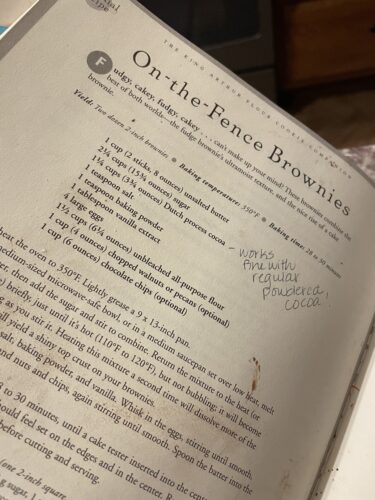 THE KING ARTHUR FLOUR COOKIE COMPANION
On-the-Fence Brownies
Fudgy, cakey, fudgy, cakey . . . can't make up your mind? These brownies combine the
best of both worlds—the fudge brownie's ultramoist texture, and the nice rise of a cake
brownie.
Yield: Two dozen 2-inch brownies Baking temperature: 350°F Baking time: 28 to 30 minutes
1 cup (2 sticks, 8 ounces) unsalted butter
2¼ cups (15¾ ounces) sugar
1¼ cups (3¾ ounces) Dutch process cocoa
1 teaspoon salt
1 teaspoon baking powder
1 tablespoon vanilla extract
4 large eggs
1½ cups (6¼ ounces) unbleached all-purpose flour
1 cup (4 ounces) chopped walnuts or pecans (optional)
1 cup (6 ounces) chocolate chips (optional)
- works
fine with
regular
powdered
cocoa!
heat the oven to 350°F. Lightly grease a 9 x 13-inch pan.
medium-sized microwave-safe bowl, or in a medium saucepan set over low heat, melt
er, then add the sugar and stir to combine. Return the mixture to the heat (or
) briefly, just until it's hot (110°F to 120°F), but not bubbling; it will become
g as you stir it. Heating this mixture a second time will dissolve more of the
ill yield a shiny top crust on your brownies.
salt, baking powder, and vanilla. Whisk in the eggs, stirring until smooth,
nd nuts and chips, again stirring until smooth. Spoon the batter into the
to 30 minutes, until a cake tester inserted into the center
ould feel set on the edges and in the center.
before cutting and serving.
one 2-inch square